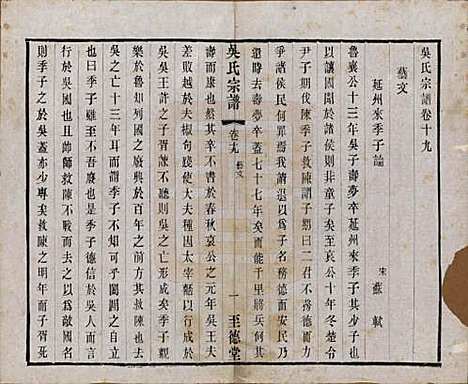 吳氏宗譜卷十九
藝文
延州來季子論
宋 蘇軾
魯襄公十二年吳子壽夢卒延州來季子其少子也
以讓國聞於諸侯則非童子矣至哀公十年冬楚令
尹子期伐陳季子救陳謂子期曰二君不務德而力
爭諸侯民何罪焉我請退以為子名務德而安民乃
還時去壽夢卒蓋七十七年矣而能千里將兵何
吳氏宗譜
卷十九 藝文
一 至德堂
壽而康也然其卒不書於春秋哀公之元年吳王夫
差敗越於夫椒句踐使大夫種因太宰嚭以行成於
吳王許之子胥諫不聽則吳之亡形成矣季子觀
樂於魯知列國之廢興於百年之前方其救陳也去
吳之亡十三年耳而謂季子不知可乎闔閭之自立
也曰季子雖至不吾廢也是季子德信於吳人而言
行於國也且帥師救陳不戰而去之以為敵國名
則季子於吳蓋亦少專矣救陳之明年而子胥死